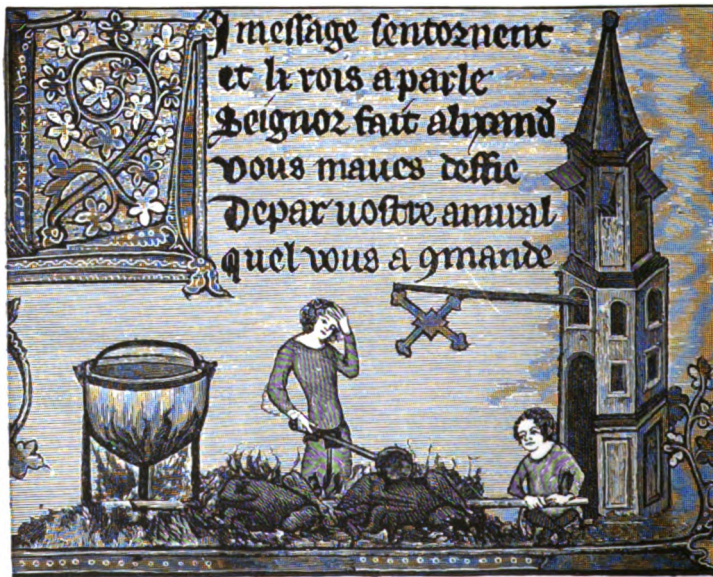 I message sentornent
et li rois a parle
Seignor fait alixand
Vous maues deffie
De par uostre amiral
quel vous a 9mande